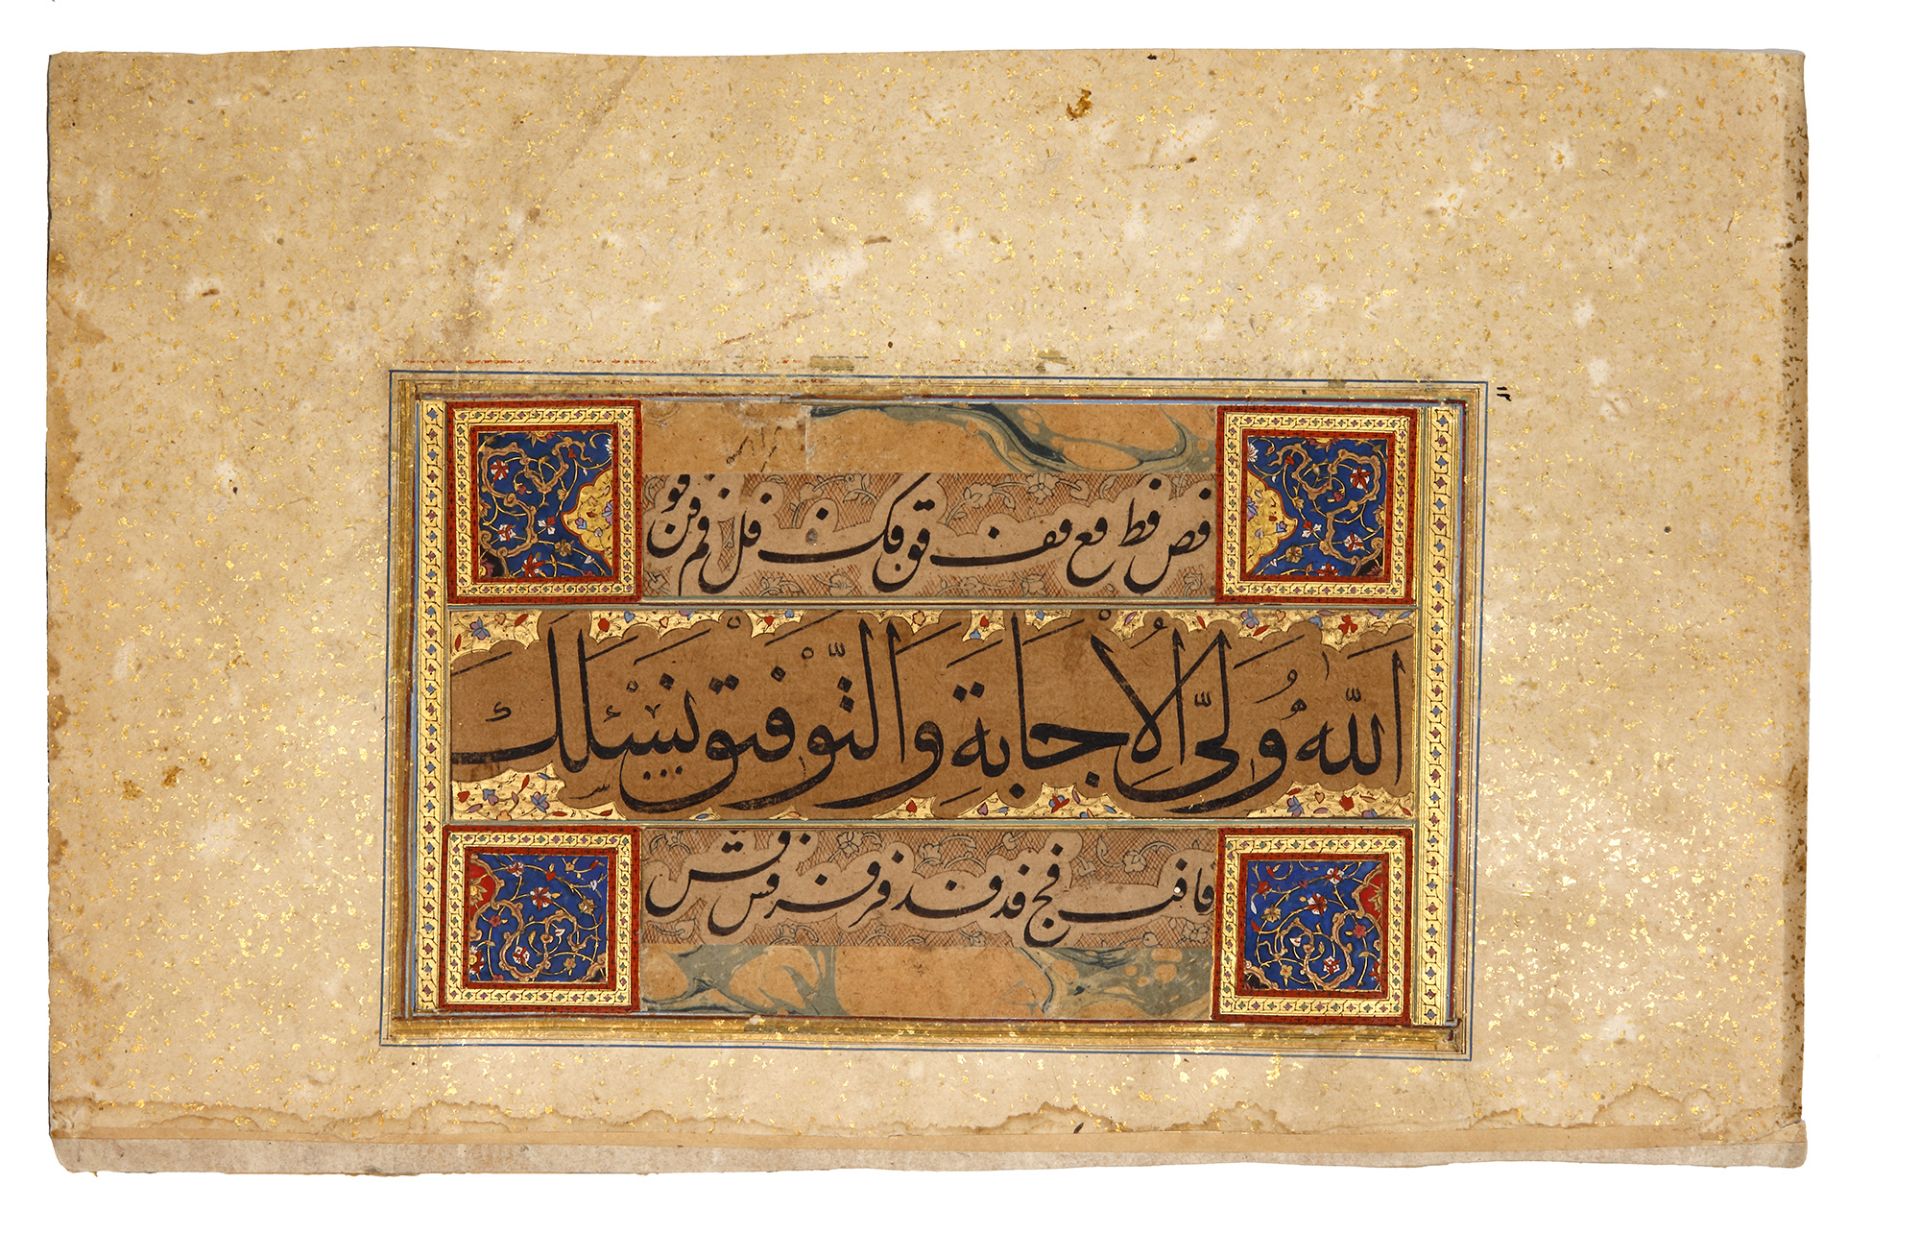 فص فط فع فف فق فک فل فم فن فو
اَللّٰهُ وَلِىُّ الْاِجَابَةِ وَالتَّوْفِيقِ نَسْئَلُكَ
فا فب فج فد فذ فر فز فس فش